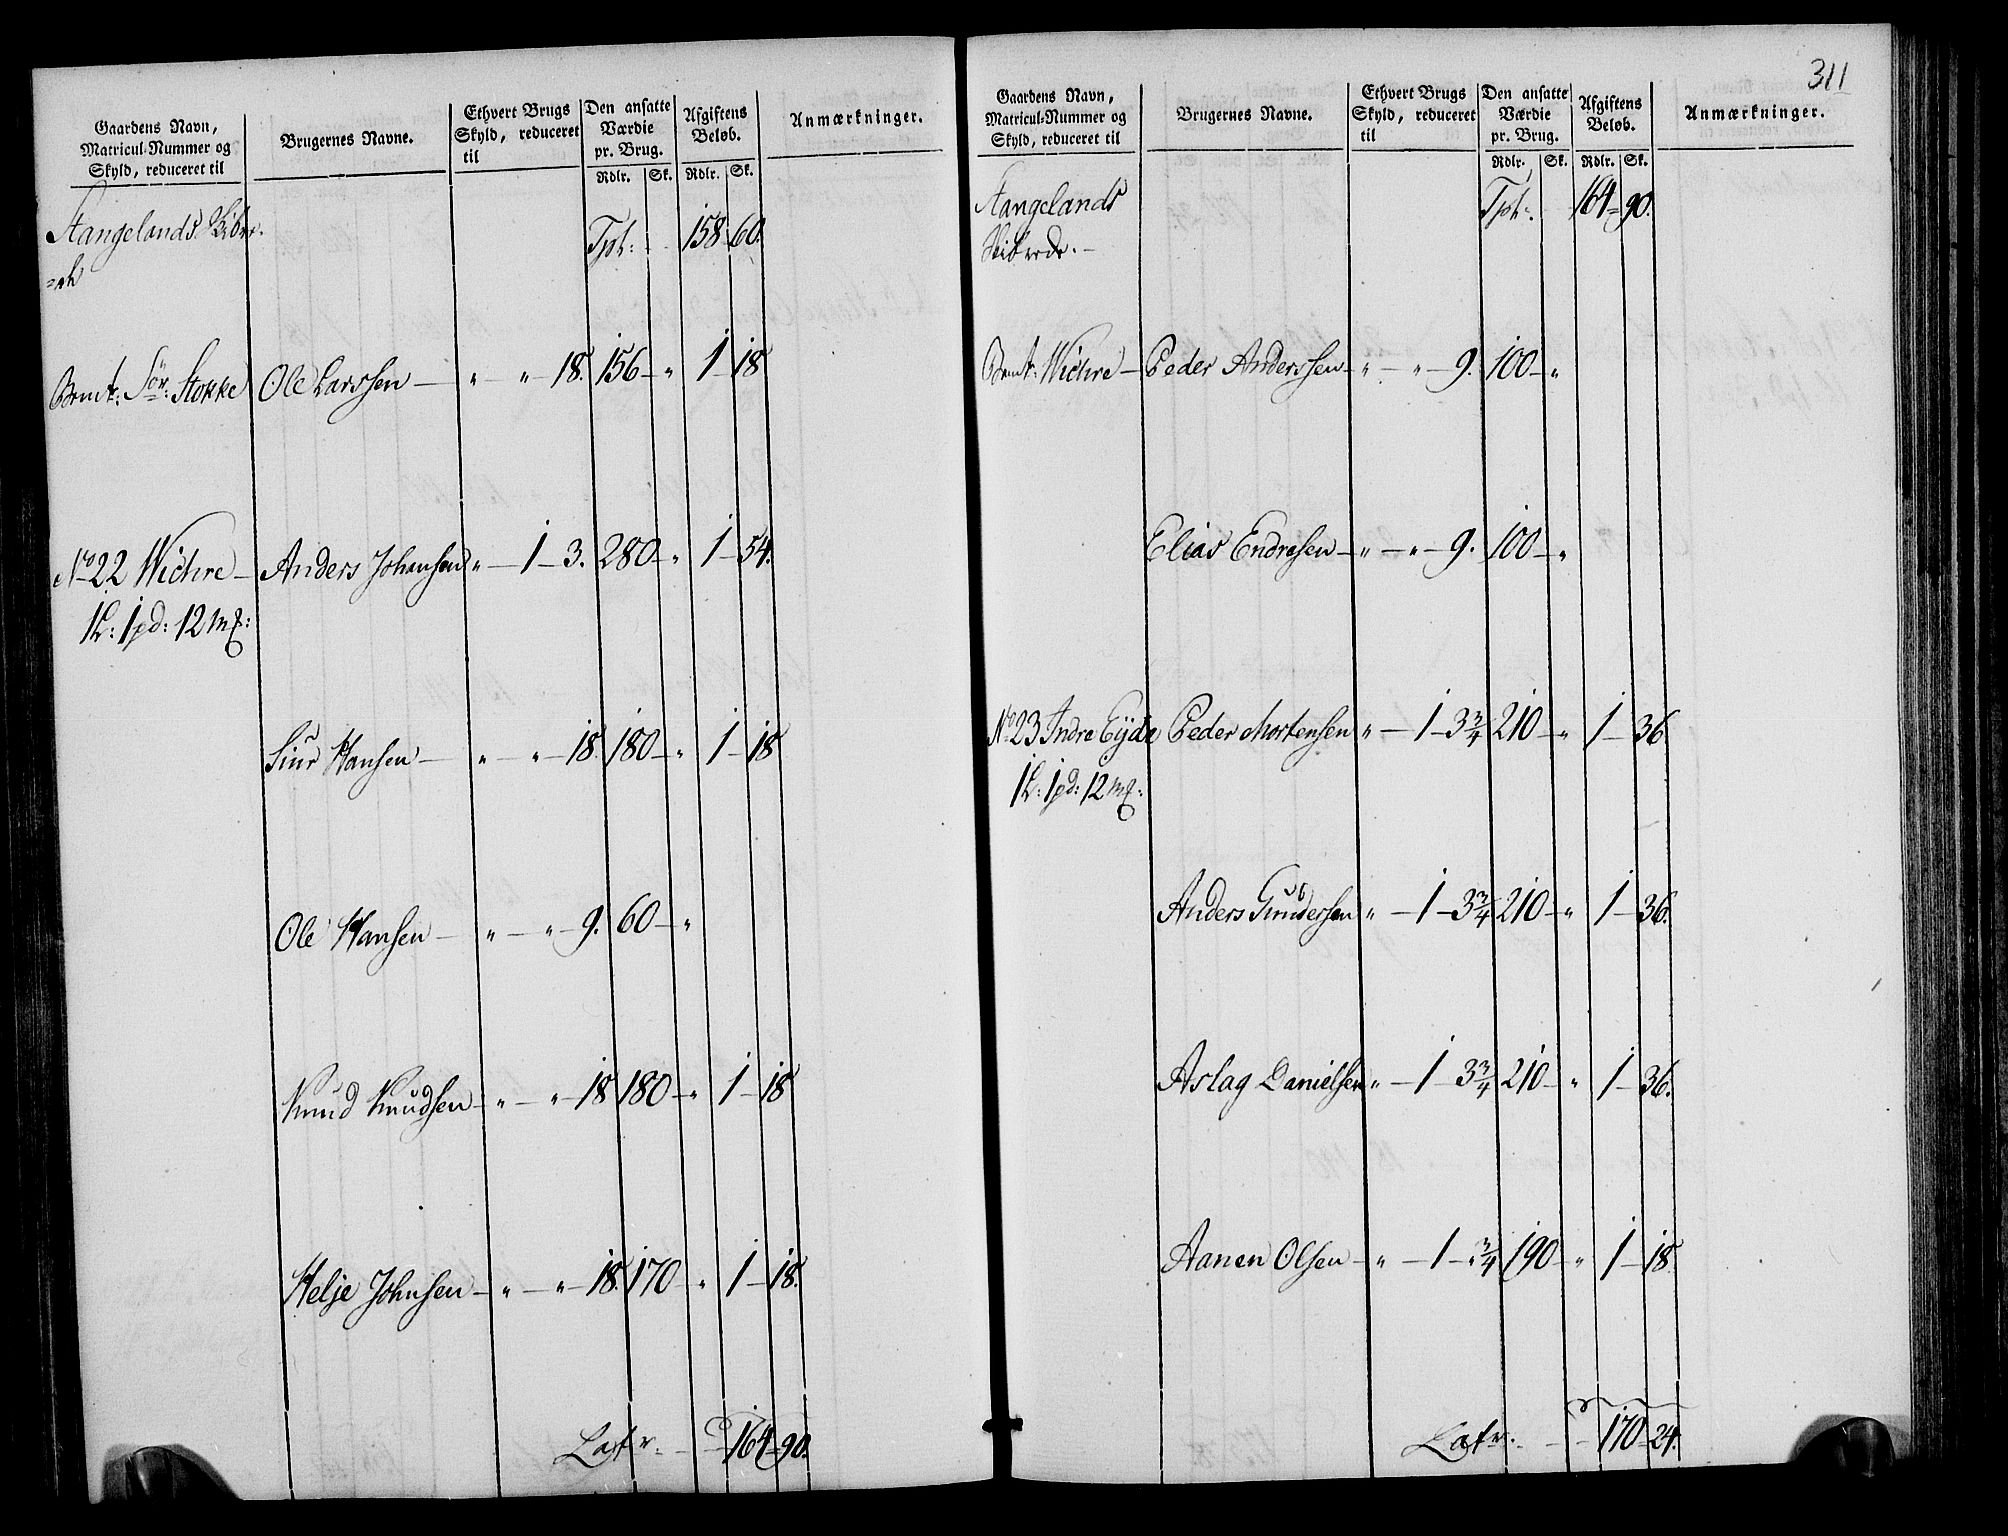 Gaardens Navn,
Matricul-Nummer og
Skyld, reduceret til
Brugernes Navne.
Ethvert Brugs
Skyld, reduceret
til
Den ansatte
Værdie
pr. Brug.
Rdlr. Sk.
Afgiftens
Beløb.
Rdlr. Sk.
Anmærkninger.
Stangelands Skibre-
=de
Tpt: 158 60.
Bemt: Sör: Stokke Ole Larssen — " — " — 18. 156 — " 1 — 18
No 22 Wichre — Anders Johansen " — 1 — 3. 280 — " 1 — 54.
1 L: 1 pd: 12 mk:
Siur Hansen — " — " — 18. 180 — " 1 — 18
Ole Hansen — " — " — 9. 60 — "
Knud Knudsen — " — " — 18 180 — " 1 — 18
Helje Johnsen — " — " — 18. 170 — " 1 — 18.
Latr. 164 90.
311
Gaardens Navn,
Matricul-Nummer og
Skyld, reduceret til
Brugernes Navne.
Ethvert Brugs
Skyld, reduceret
til
Den ansatte
Værdie
pr. Brug.
Rdlr. Sk.
Afgiftens
Beløb.
Rdlr. Sk.
Anmærkninger.
Stangelands
Skibrede. —
Tpt: 164 90.
Bemt: Wichre — Peder Anderssen — " — " — 9. 100 — "
Elias Endresen — " — " — 9. 100 — "
No 23 Indre Eijde Peder Mortensen " — 1 — 3 3/4 210 — " 1 — 36
1 L: 1 pd: 12 mk:
Anders Gundersen " — 1 — 3 3/4 210 — " 1 — 36.
Aslag Danielsen " — 1 — 3 3/4 210 — " 1 — 36.
Aanen Olsen — " — 1 — " 3/4 190 — " 1 — 18
Latr. 170 24.